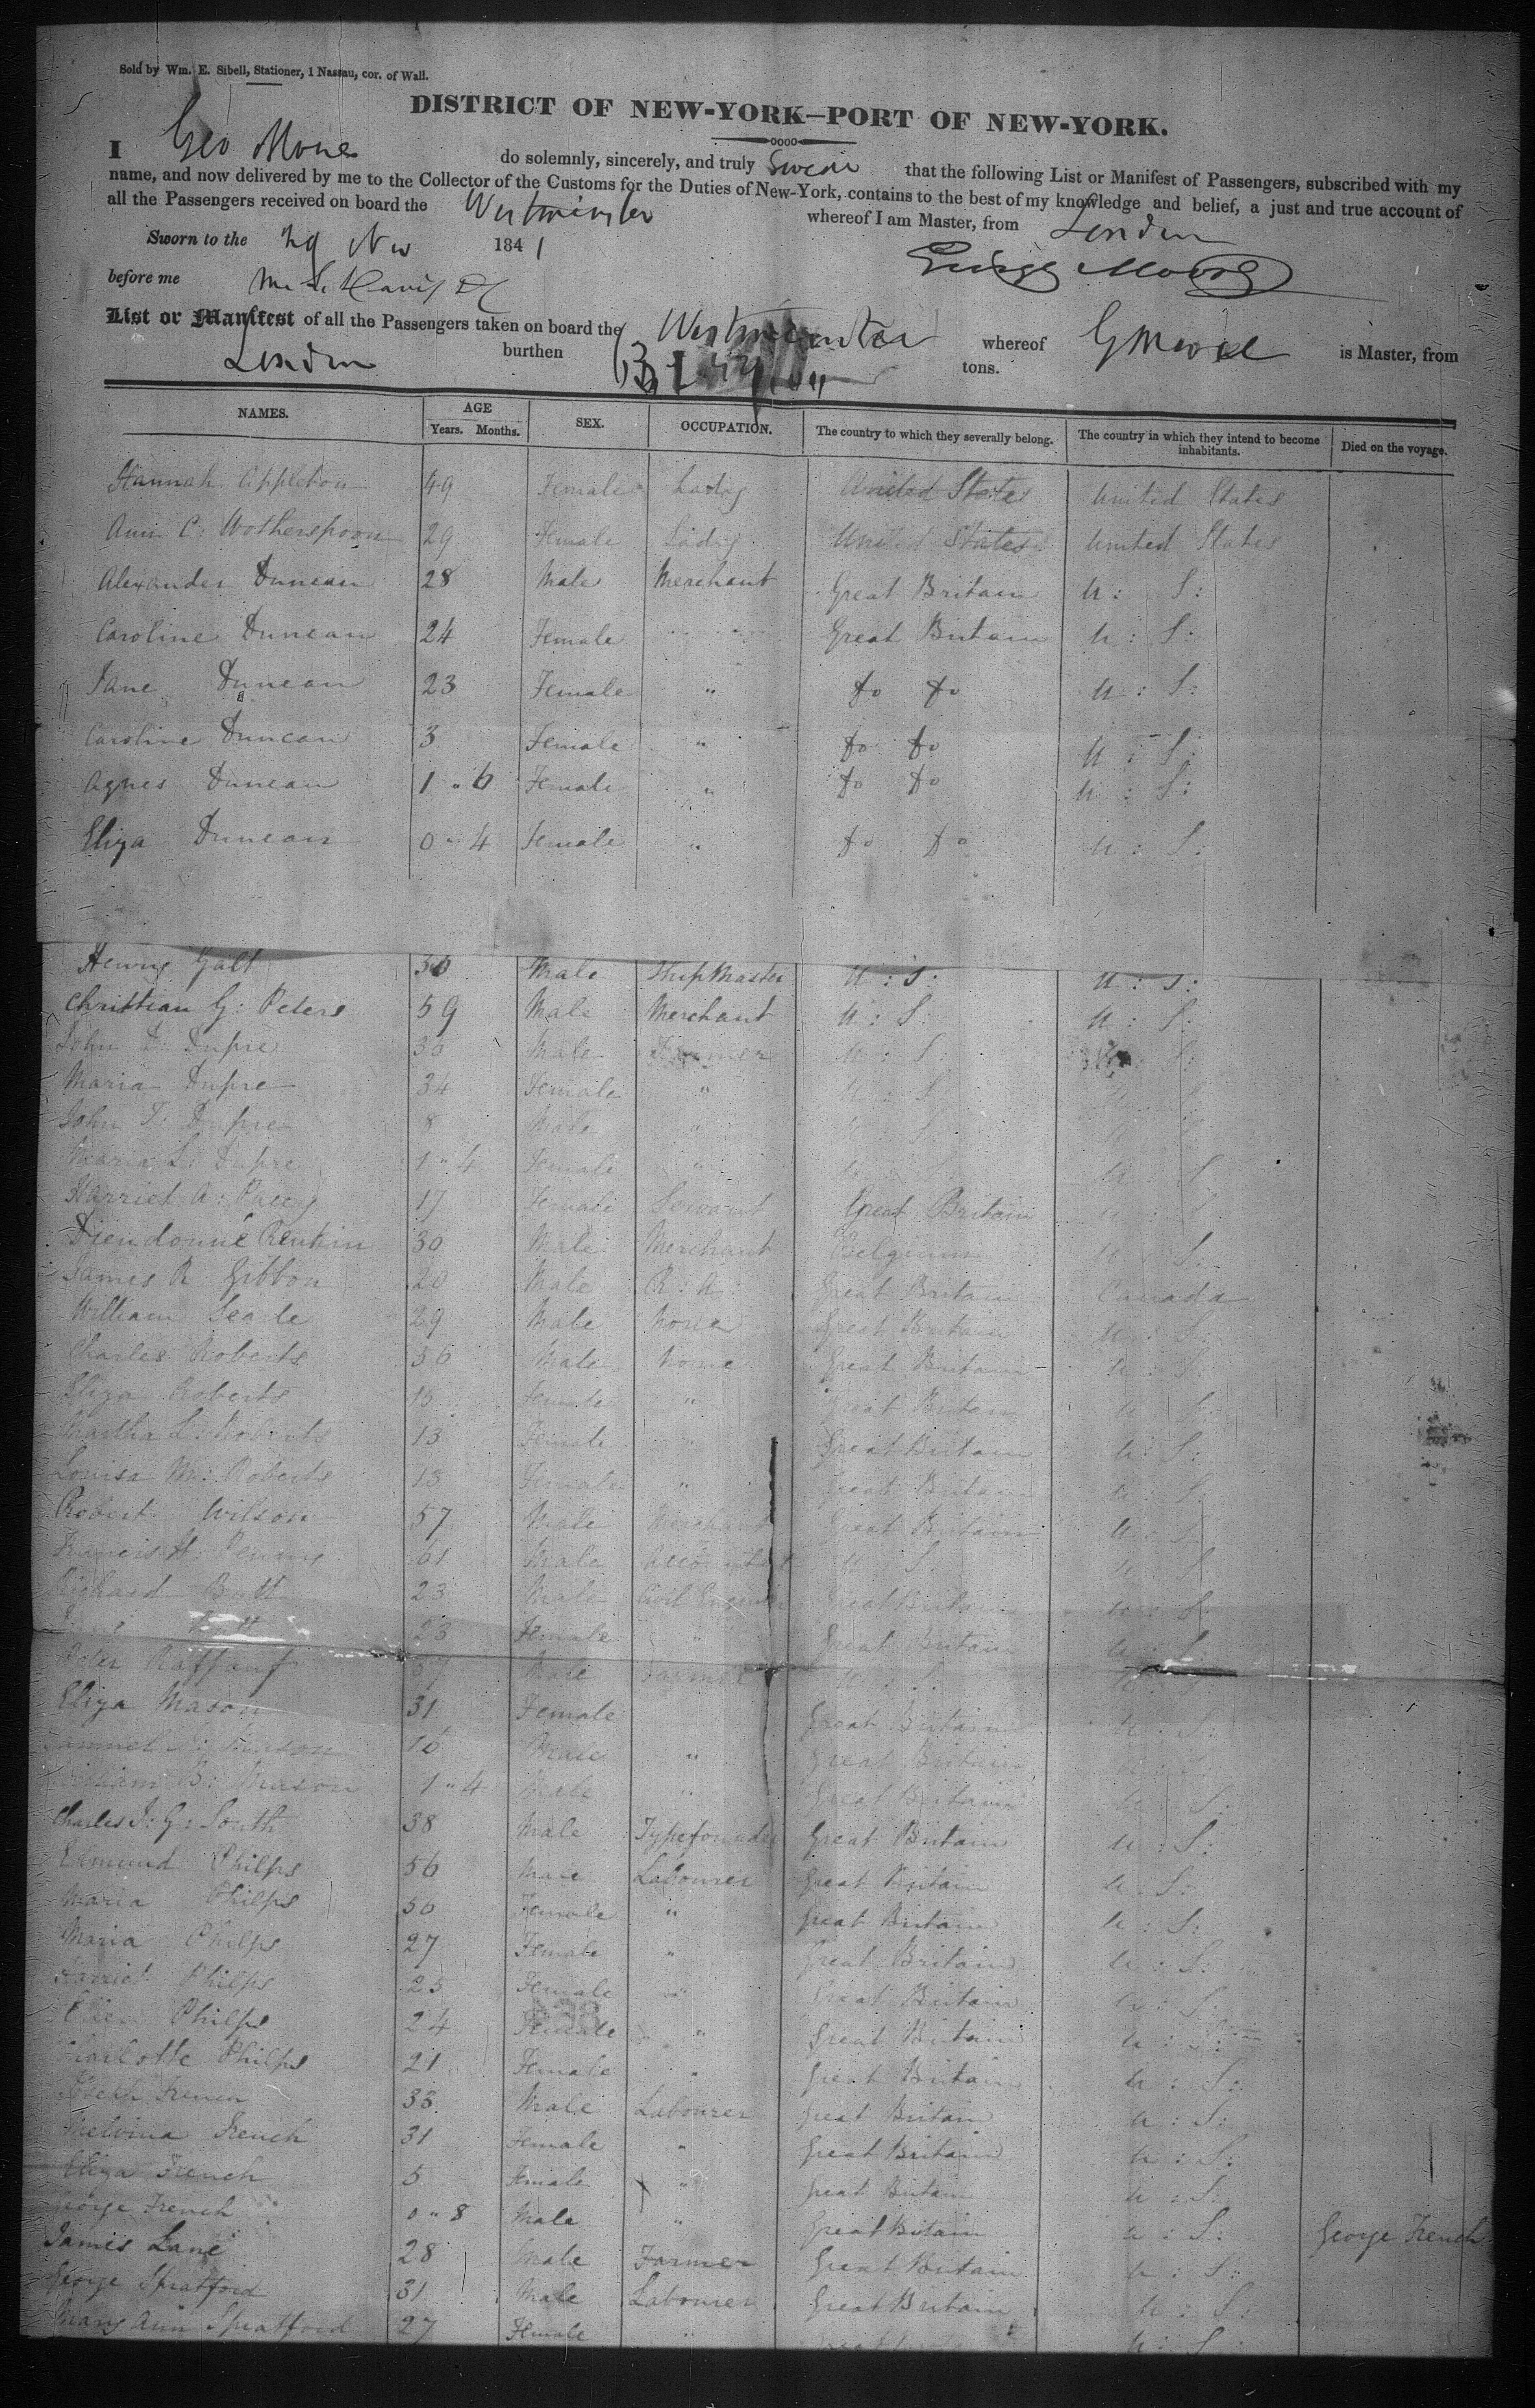 Sold by Wm. E. Sibell, Stationer, 1 Nassau, cor. of Wall.
DISTRICT OF NEW-YORK—PORT OF NEW-YORK.
I Geo Moore do solemnly, sincerely, and truly swear that the following List or Manifest of Passengers, subscribed with my
name, and now delivered by me to the Collector of the Customs for the Duties of New-York, contains to the best of my knowledge and belief, a just and true account of
all the Passengers received on board the Westminster whereof I am Master, from London
Sworn to the 29 Nov 1841
George Moore
before me
List or Manifest of all the Passengers taken on board the Westminster whereof G Moore is Master, from
London burthen tons.
NAMES. AGE Years. Months. SEX. OCCUPATION. The country to which they severally belong. The country in which they intend to become inhabitants. Died on the voyage.
Hannah Appleton 49 Female Lady United States United States
Ann C: Wotherspoon 29 Female Lady United States United States
Alexander Duncan 28 Male Merchant Great Britain U: S:
Caroline Duncan 24 Female " " Great Britain U: S:
Jane Duncan 23 Female " do do U: S:
Caroline Duncan 3 Female " do do U: S:
Agnes Duncan 1 " 6 Female " do do U: S:
Eliza Duncan 0 " 4 Female " do do U: S:
Henry Galt 36 Male Ship Master U: S: U: S:
Christian G: Peters 59 Male Merchant U: S: U: S:
John D: Dupre 30 Male Farmer U: S: U: S:
Maria Dupre 34 Female " U: S: U: S:
John T: Dupre 8 Male " U: S: U: S:
Maria L: Dupre 1 " 4 Female " U: S: U: S:
Harriet A: 17 Female Servant Great Britain U: S:
Dieudonné Renkin 30 Male Merchant Belgium U: S:
James R Gibbon 20 Male R: A: Great Britain Canada
William Searle 29 Male None Great Britain U: S:
Charles Roberts 56 Male None Great Britain U: S:
Eliza Roberts 15 Female " Great Britain U: S:
Martha L: Roberts 13 Female " Great Britain U: S:
Louisa M: Roberts 13 Female " Great Britain U: S:
Robert Wilson 57 Male Merchant Great Britain U: S:
Francis H: 61 Male Accountant U: S: U: S:
Richard Butt 23 Male Civil Engineer Great Britain U: S:
23 Female " Great Britain U: S:
Peter 57 Male Farmer U: S: U: S:
Eliza Mason 31 Female Great Britain U: S:
Mason 16 Male " Great Britain U: S:
William B: Mason 1 " 4 Male " Great Britain U: S:
Charles J: G: South 38 Male Typefounder Great Britain U: S:
Edmund Philps 56 Male Labourer Great Britain U: S:
Maria Philps 50 Female " Great Britain U: S:
Maria Philps 27 Female " Great Britain U: S:
Harriet Philps 25 Female " Great Britain U: S:
Ellen Philps 24 Female " Great Britain U: S:
Charlotte Philps 21 Female " Great Britain U: S:
Joseph French 33 Male Labourer Great Britain U: S:
Melvina French 31 Female " Great Britain U: S:
Eliza French 5 Female " Great Britain U: S:
George French 0 " 8 Male " Great Britain U: S: George French
James Lane 28 Male Farmer Great Britain U: S:
George Spratford 31 Male Labourer Great Britain U: S:
Mary Ann Spratford 27 Female " Great U: S: